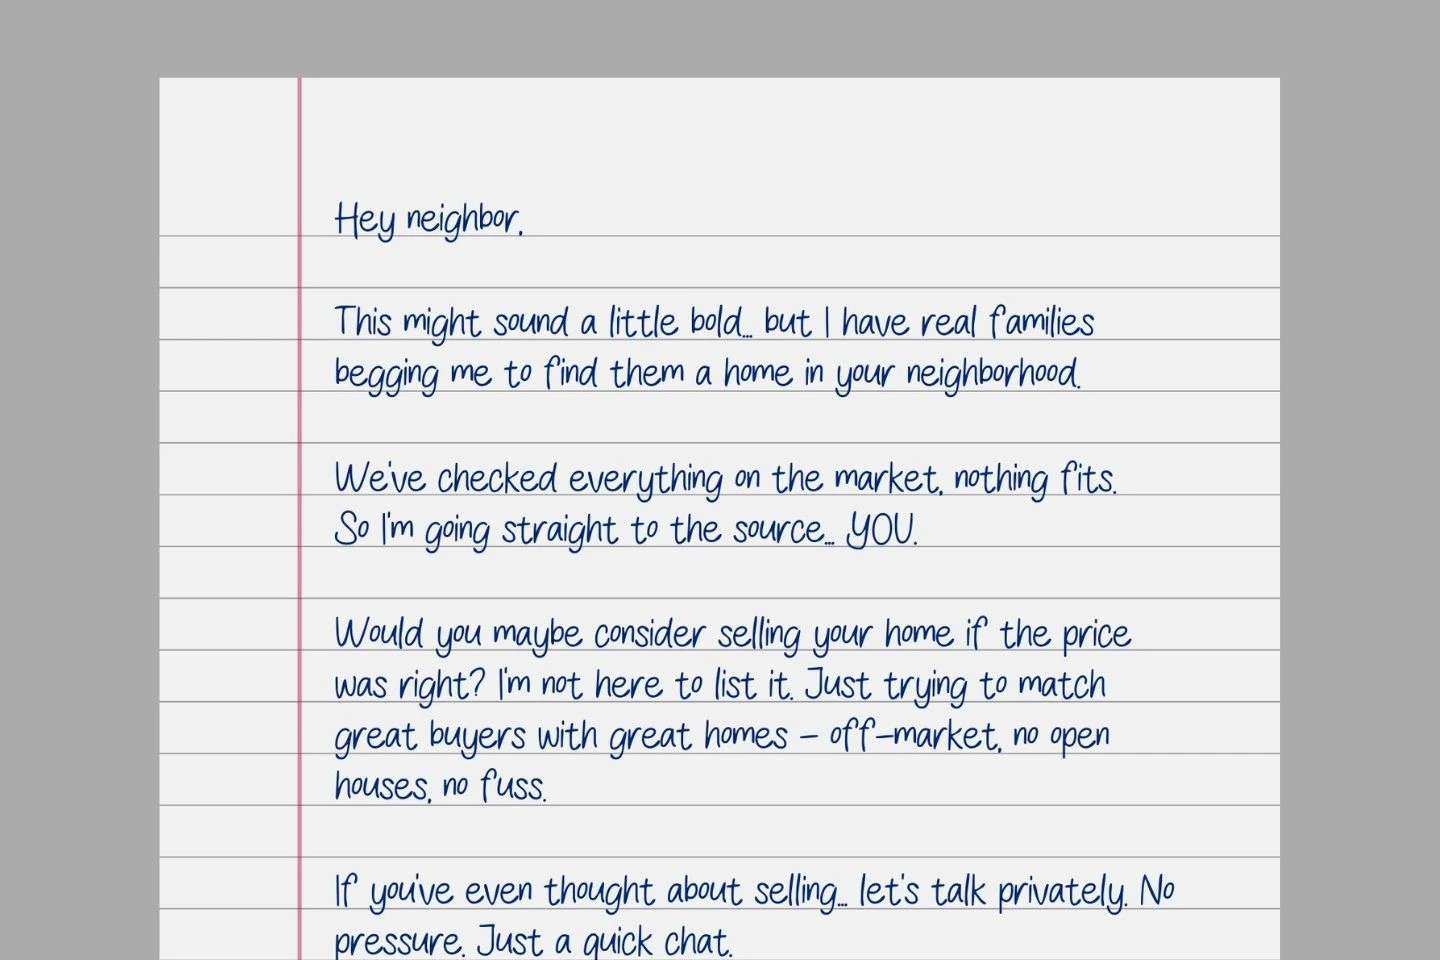 Hey neighbor,
This might sound a little bold... but I have real families
begging me to find them a home in your neighborhood.
We've checked everything on the market, nothing fits.
So I'm going straight to the source... YOU.
Would you maybe consider selling your home if the price
was right? I'm not here to list it. Just trying to match
great buyers with great homes – off-market, no open
houses, no fuss.
If you've even thought about selling... let's talk privately. No
pressure. Just a quick chat.